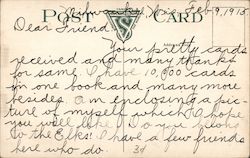 Milwaukee, Wis. Feb 9, 1913
POST CARD
Dear Friend,
Your pretty cards
received and many thanks
for same. I have 10,000 cards
in one book and many more
besides. Am enclosing a pic-
ture of myself which I hope
you will like. Do you belong
to the Elks? I have a few friends
here who do.